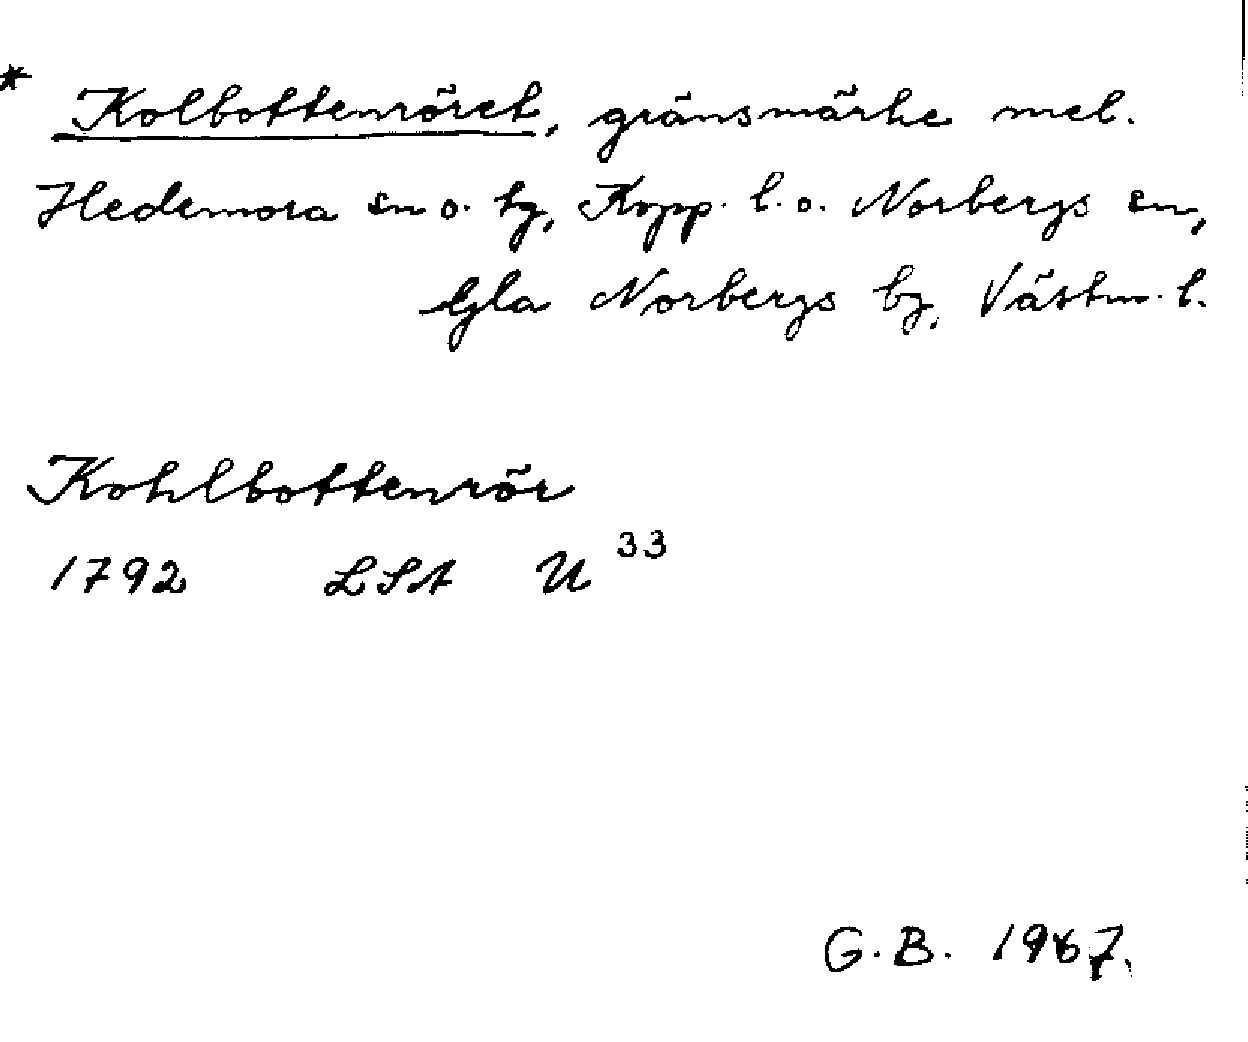 * Kolbottenröret, gränsmärke mel.
Hedemora sn o. tg, Kopp. l. o. Norbergs sn,
Gla Norbergs bg, Västm. l.
Kohlbottenrör
1792 LSA U 33
G. B. 1967.